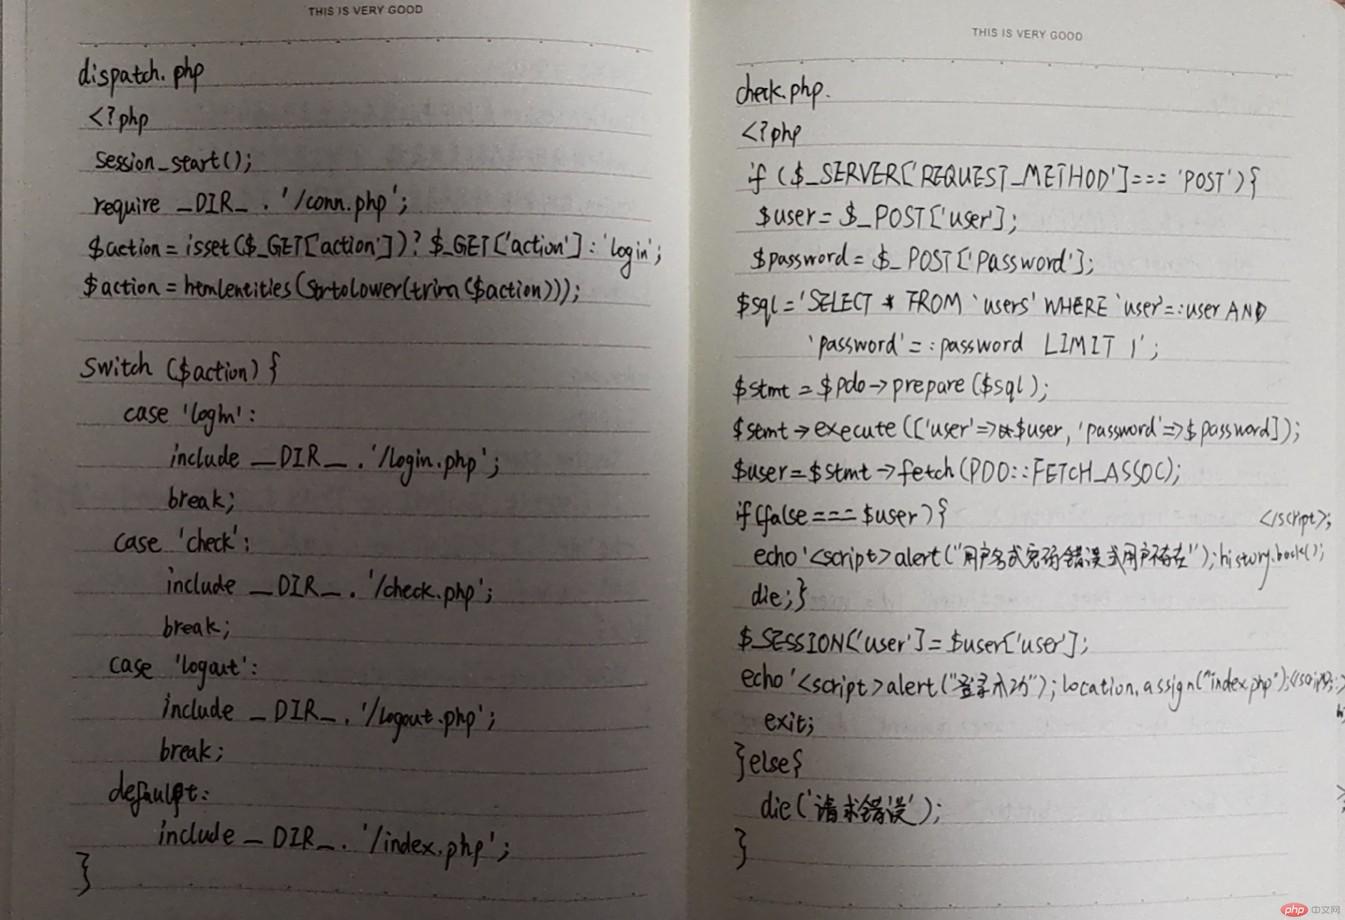 THIS IS VERY GOOD
dispatch.php
<?php
session_start();
require _DIR_ . '/conn.php';
$action = isset($_GET['action'])? $_GET['action'] : 'login';
$action = htmlentities(strtolower(trim($action)));
switch ($action) {
case 'login':
include __DIR__ . '/login.php';
break;
case 'check':
include __DIR__ . '/check.php';
break;
case 'logout':
include __DIR__ . '/logout.php';
break;
default:
include __DIR__ . '/index.php';
}
THIS IS VERY GOOD
check.php.
<?php
if ($_SERVER['REQUEST_METHOD'] === 'POST'){
$user = $_POST['user'];
$password = $_POST['password'];
$sql = 'SELECT * FROM `users' WHERE `user'=:user AND
'password' = :password LIMIT 1';
$stmt = $pdo->prepare($sql);
$stmt->execute(['user'=>$user, 'password'=>$password]);
$user = $stmt->fetch(PDO::FETCH_ASSOC);
if(false === $user){
echo '<script>alert("用户名或密码错误或用户不存在");history.back();</script>;
die;}
$_SESSION['user'] = $user['user'];
echo '<script>alert("登录成功");location.assign("index.php');</script>;
exit;
}else{
die('请求错误');
}
php 中文网